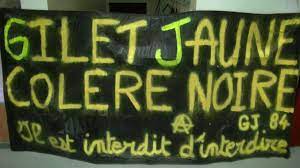 GILET JAUNE
COLÈRE NOIRE
GJ 84
Il est interdit d'interdire